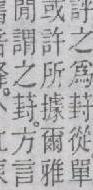 評之為封從單
或許所據爾雅
閒謂之封。方言